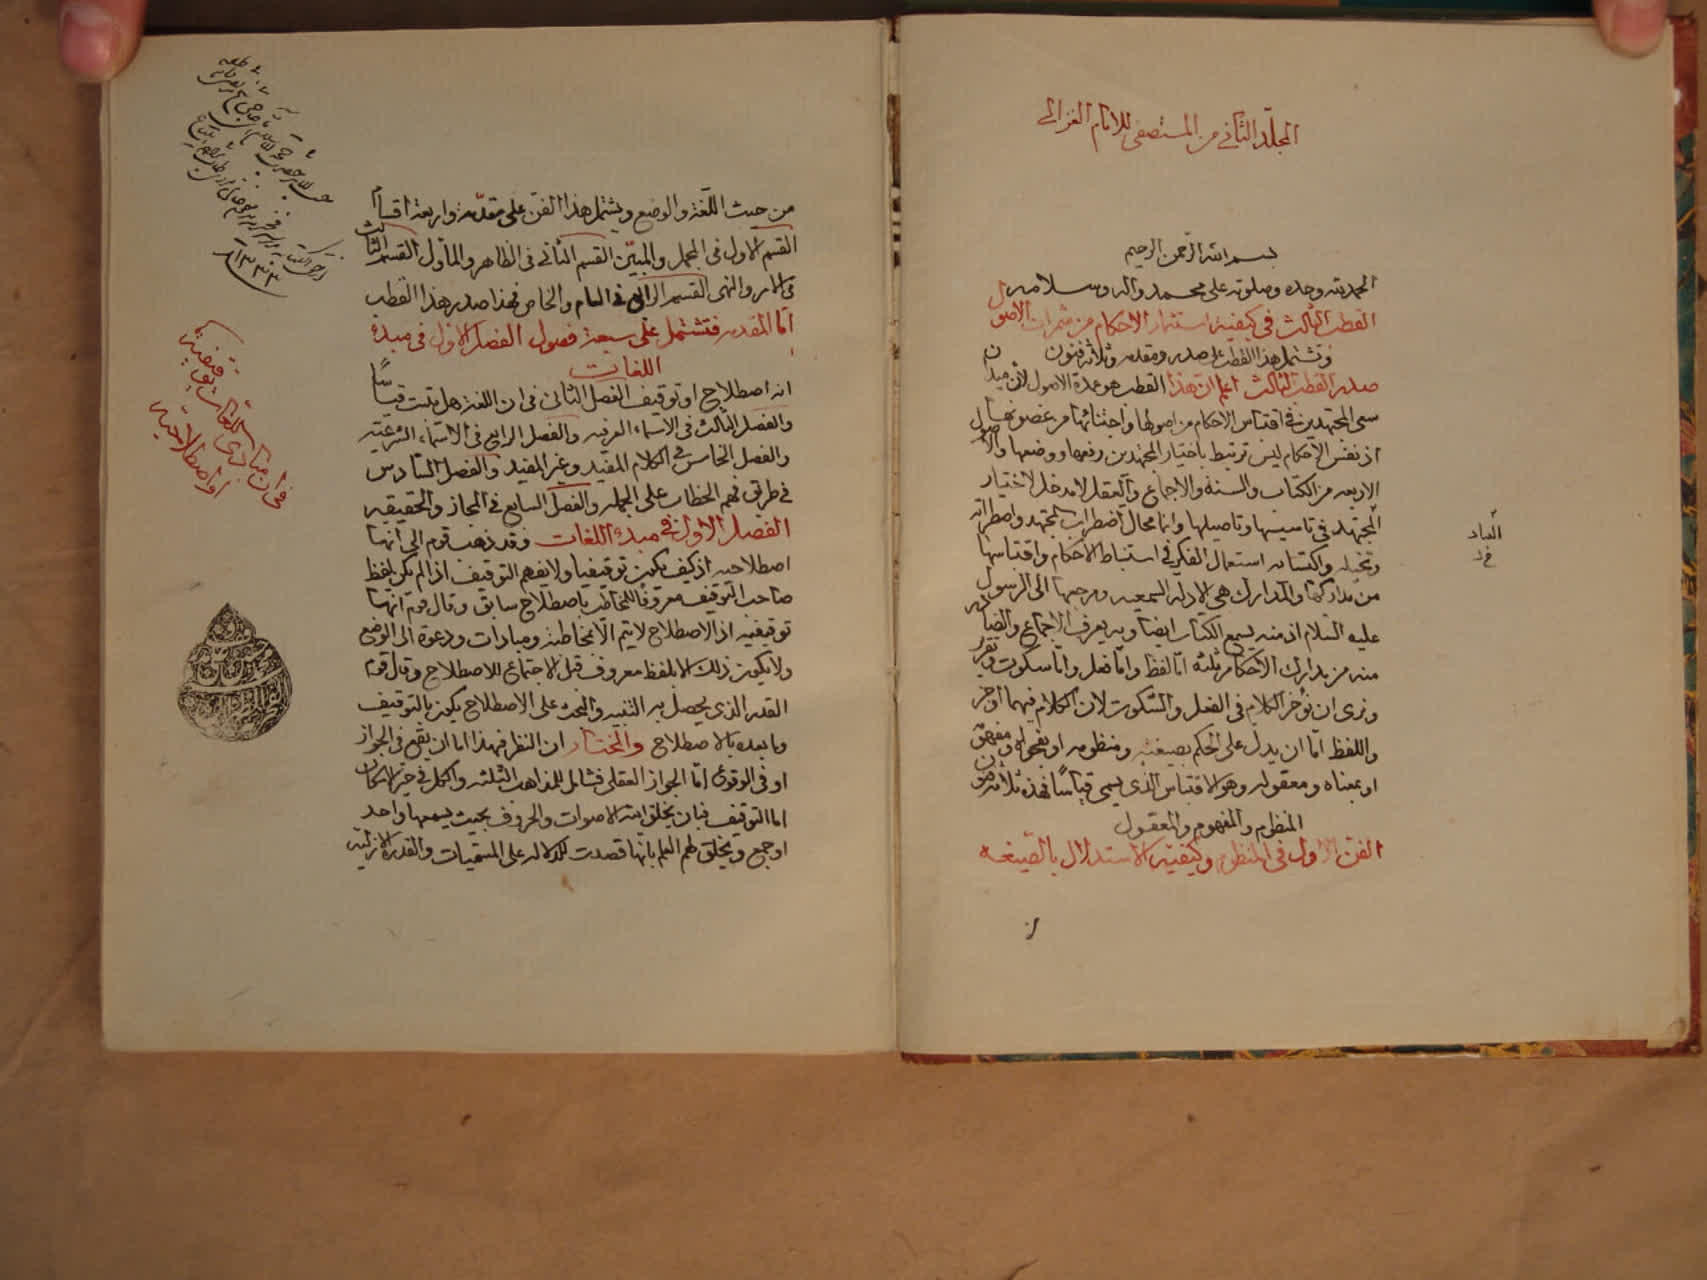 المجلد الثاني من المستصفى للامام الغزالي
بسم الله الرحمن الرحيم
الحمد لله وحده وصلوته على محمد واله وسلامه
القطب الثالث في كيفية استثمار الاحكام من ثمرات الاصول
وتشتمل هذا القطب على صدر ومقدمه وثلاثه فنون
صدر القطب الثالث اعلم ان هذا القطب هو عمدة الاصول لان ميدان
سعى المجتهدين في اقتباس الاحكام من اصولها واجتنائها من غصونها
اذ نفس الاحكام ليس ترتبط باختيار المجتهدين رفعها ووضعها والاصول
الاربعه من الكتاب والسنة والاجماع والعقل لا مدخل لاختيار
المجتهد في تاسيسها وتاصيلها وانما مجال اضطراب المجتهد واضطرابه
واكتسابه استعمال الفكر في استنباط الاحكام واقتباسها
من مداركها والمدارك هي الادله السمعيه ومرجعها الى الرسول
عليه السلام اذ منه يسمع الكتاب ايضا وبه يعرف الاجماع والصادر
منه من مدارك الاحكام ثلثه اما لفظ واما فعل واما سكوت وتقرير
ونرى ان نؤخر الكلام في الفعل والسكوت لان الكلام فيهما اوجز
واللفظ اما ان يدل على الحكم بصيغته ومنظومه او بفحواه ومفهومه
او بمعناه ومعقوله وهو الاقتباس الذي يسمى قياسا فهذه ثلاثه فنون
المنظوم والمفهوم والمعقول
الفن الاول في المنظوم وكيفيه الاستدلال بالصيغه
من حيث اللغة والوضع ويشتمل هذا الفن على مقدمه واربعة اقسام
القسم الاول في المجمل والمبين القسم الثاني في الظاهر والماول القسم الثالث
في الامر والنهى القسم الرابع في العام والخاص فهذا صدر هذا القطب
اما المقدمه فتشتمل على سبعة فصول الفصل الاول في مبدء
اللغات
انه اصطلاح او توقيف الفصل الثاني في ان اللغة هل تثبت قياسا
والفصل الثالث في الاسماء العرفيه والفصل الرابع في الاسماء الشرعيه
والفصل الخامس في الكلام المفيد وغير المفيد والفصل السادس
في طريق فهم الخطاب على الجمله والفصل السابع في المجاز والحقيقه
الفصل الاول في مبدء اللغات وقد ذهب قوم الى انها
اصطلاحيه اذ كيف يكون توقيفيا ولا يفهم التوقيف اذ لم يكن لفظ
صاحب التوقيف معروفا للمخاطب باصطلاح سابق وقال قوم انها
توقيفيه اذ الاصطلاح لا يتم الا بمخاطبة ومبادات ودعوة الى الوضع
ولا يكون ذلك الا بلفظ معروف قبل الاجتماع للاصطلاح وقال قوم
القدر الذي يحصل به التنبيه والبحث على الاصطلاح يكون بالتوقيف
وما بعده بالاصطلاح والمختار ان النظر فهذا اما ان يقع في الجواز
او في الوقوع اما الجواز العقلي فشامل للمذاهب الثلثه والكل في حيز الامكان
اما التوقيف فبان يخلق الله الاصوات والحروف بحيث يسمعها واحد
او جمع ويخلق لهم العلم بانها قصدت للدلاله على المسميات والقدرة الازليه
في ان مبادى اللغات توقيفية
او اصطلاحية